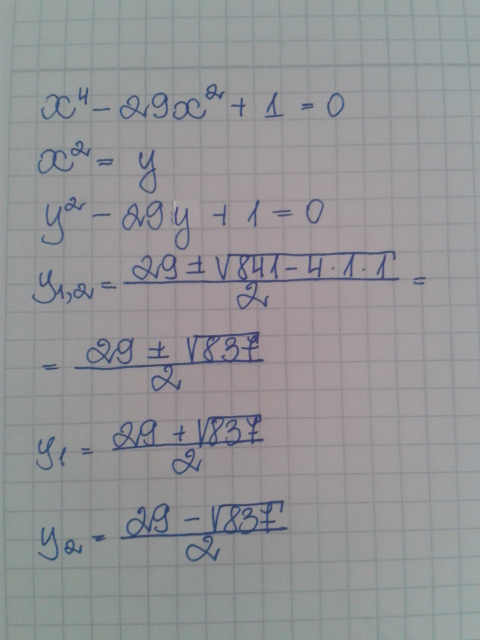 x⁴ - 29x² + 1 = 0
x² = y
y² - 29y + 1 = 0
y₁,₂ = (29 ± √(841 - 4·1·1))/2 =
= (29 ± √837)/2
y₁ = (29 + √837)/2
y₂ = (29 - √837)/2